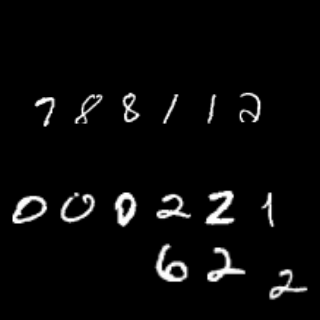 788112
000221
622